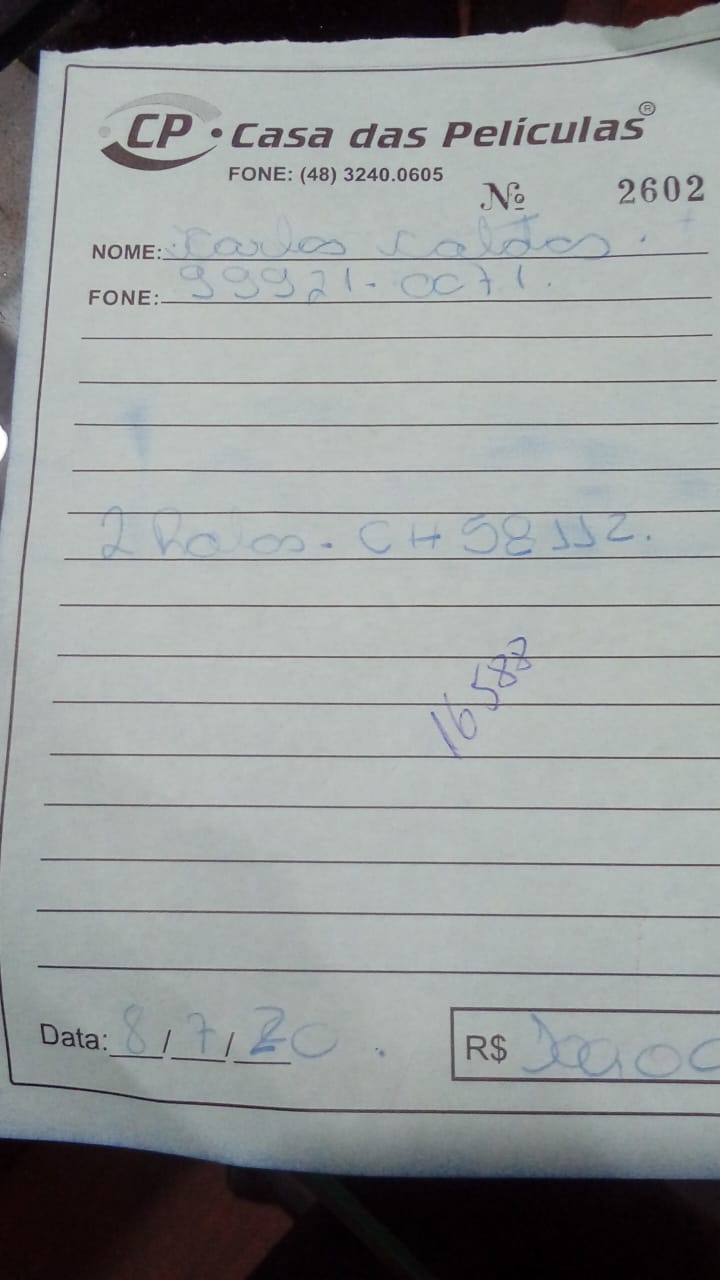 CP • Casa das Películas®
FONE: (48) 3240.0605
Nº 2602
NOME: Carlos Caldas.
FONE: 99921-0071.
2 Rolos. CH 58 152.
16588
Data: 8/7/20.
R$